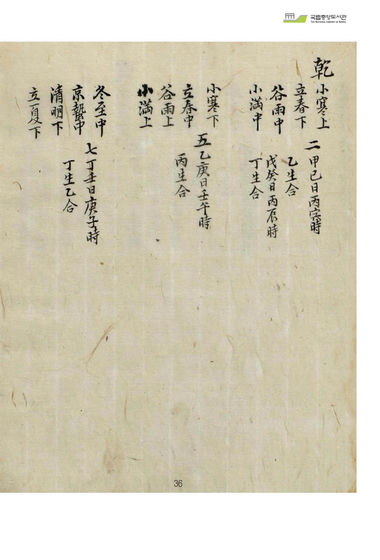 국립중앙도서관
The National Library of Korea
乾小寒上 二甲己日丙寅時
立春下 乙生合
谷雨中 戊癸日丙辰時
小滿中 丁生合
小寒下 五乙庚日壬午時
立春中 丙生合
谷雨上
小滿上
冬至中 七丁壬日庚子時
京蟄中 丁生乙合
清明下
立夏下
36